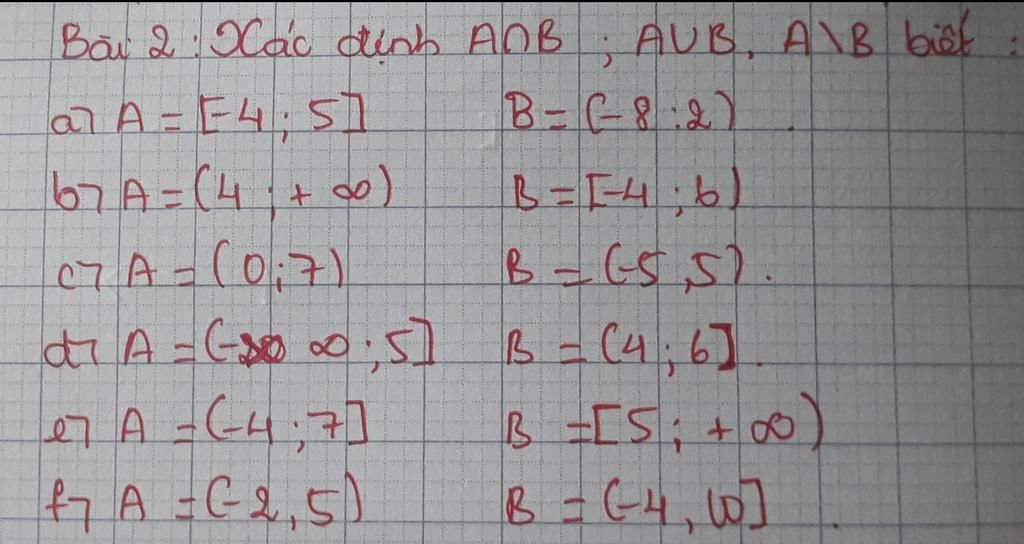 Bài 2: Xác định A∩B ; A∪B, A\B biết :
a) A = [-4 ; 5] B = (-8 ; 2) .
b) A = (4 ; + ∞) B = [-4 ; 6)
c) A = (0 ; 7) B = (-5 , 5) .
d) A = (- ∞ ; 5] B = (4 ; 6] .
e) A = (-4 ; 7] B = [5 ; + ∞)
f) A = (-2 , 5) B = (-4 , 10] .